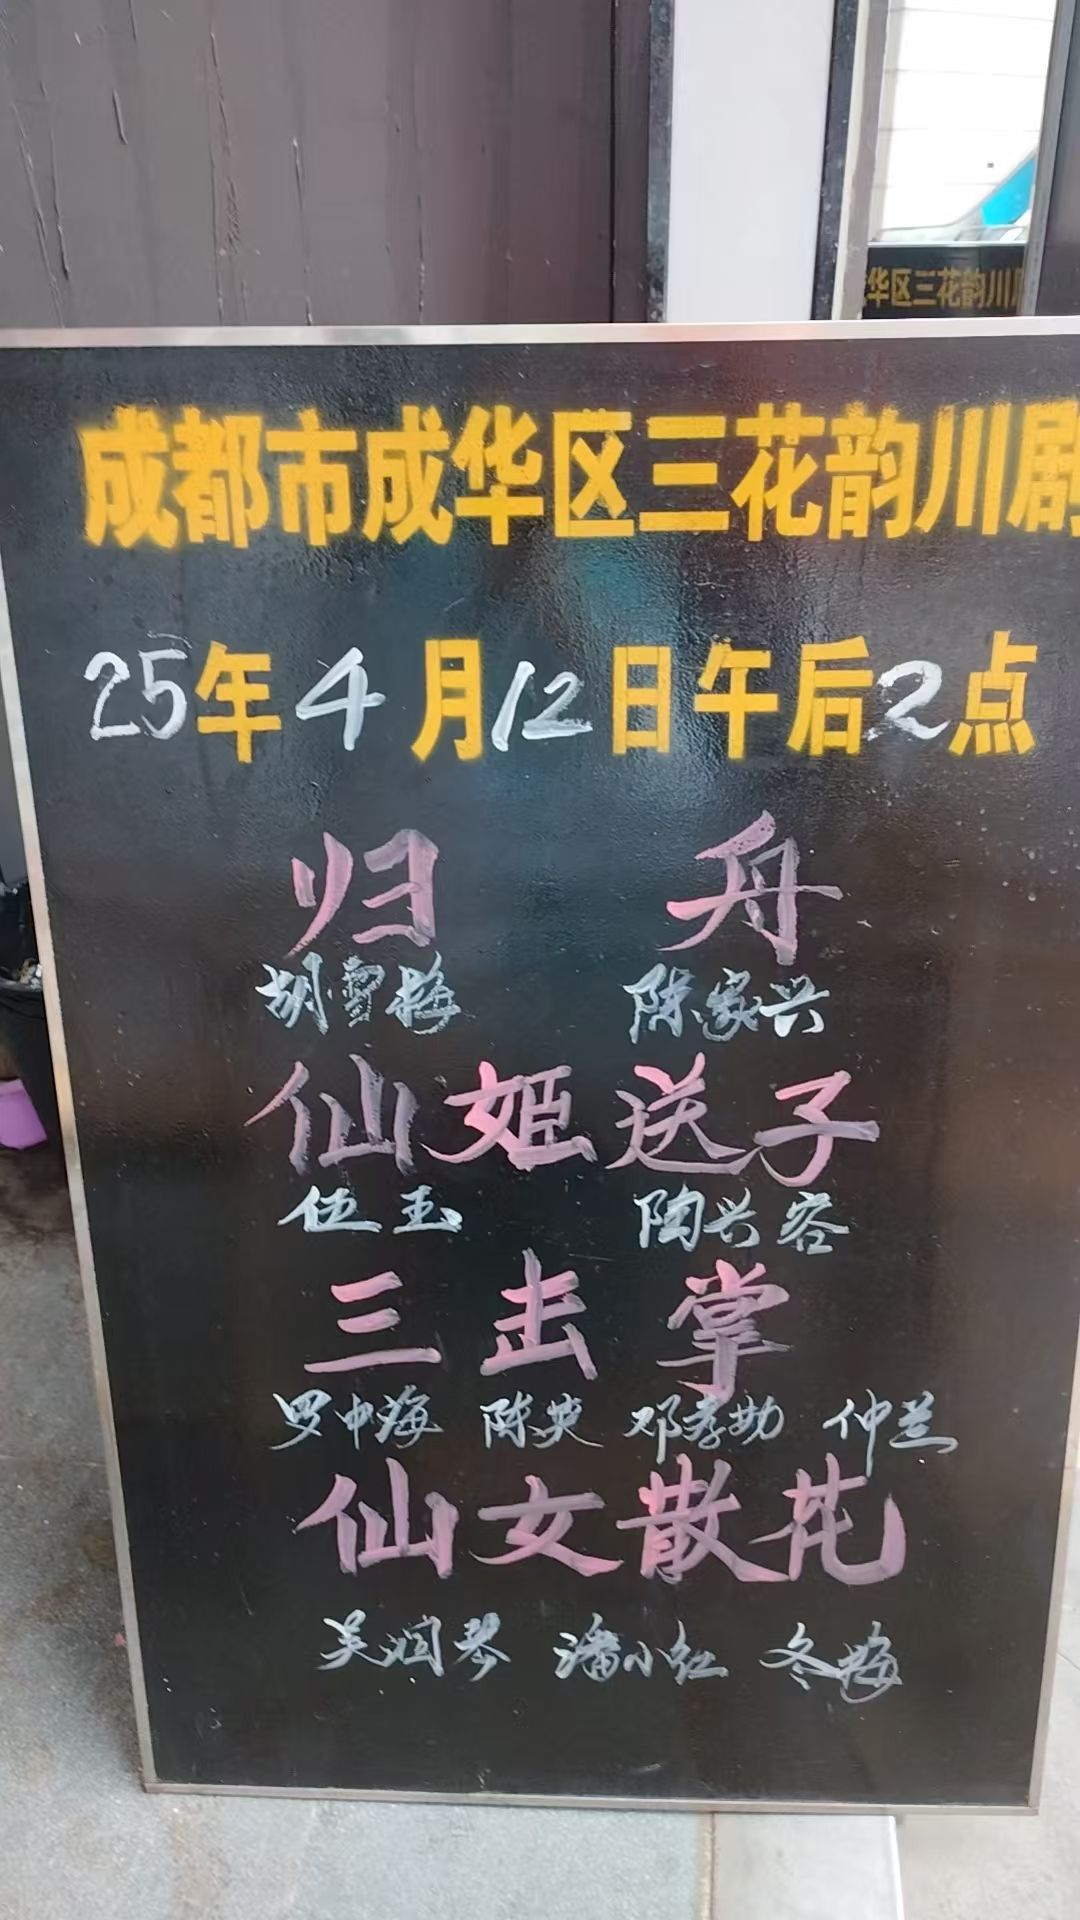 华区三花韵川
成都市成华区三花韵川剧
25年4月12日午后2点
归舟
胡雪梅 陈家兴
仙姬送子
伍玉 陶兴容
三击掌
罗中海 陈英 邓孝勤 仲兰
仙女散花
吴润琴 潘小红 冬梅